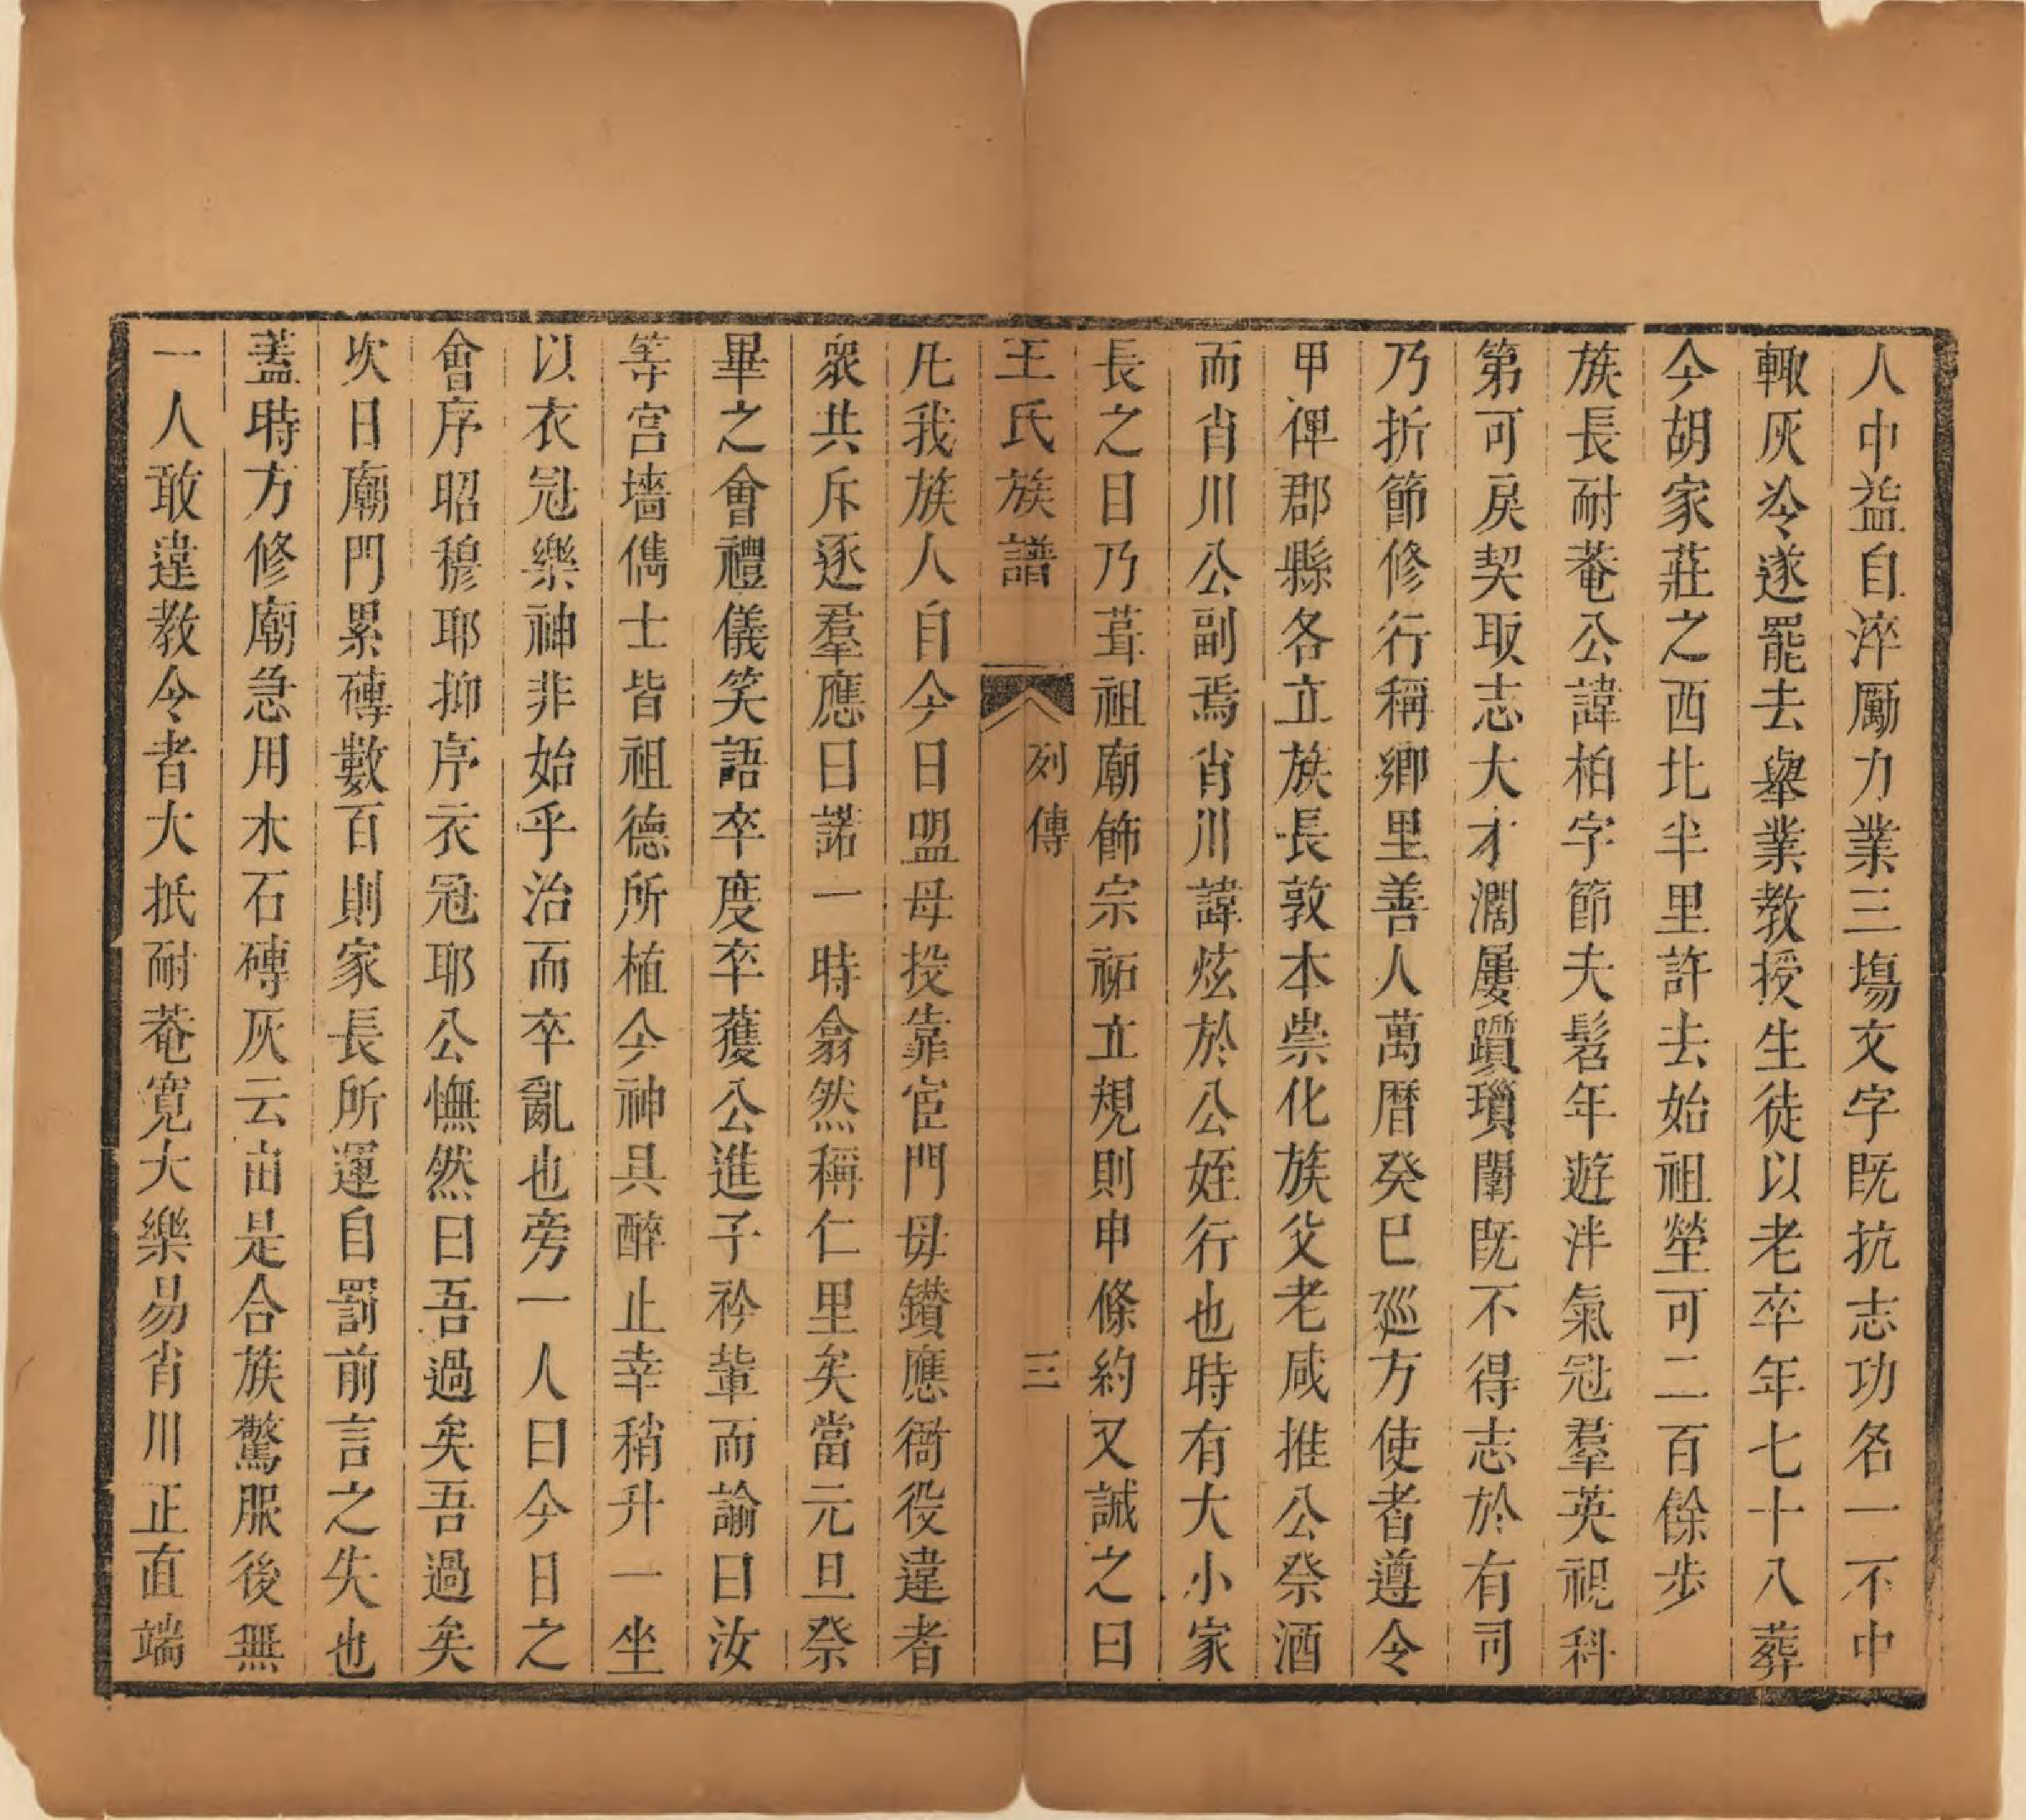 人中益自淬勵力業三塲文字既抗志功名一不中
輙灰冷遂罷去舉業教授生徒以老卒年七十八葬
今胡家莊之西北半里許去始祖塋可二百餘步
族長耐菴公諱柏字節夫髫年遊泮氣冠羣英視科
第可戾契取志大才濶屢躓瑣闈既不得志於有司
乃折節修行稱鄉里善人萬曆癸巳廵方使者遵令
甲俾郡縣各立族長敦本崇化族父老咸推公祭酒
而肖川公副焉肖川諱炫於公姪行也時有大小家
長之目乃葺祖廟飾宗祏立規則申條約又誡之曰
王氏族譜
列傳
三
凡我族人自今日盟毋投靠宦門毋鑚應衙役違者
衆共斥逐羣應曰諾一時翕然稱仁里矣當元旦祭
畢之會禮儀笑語卒度卒獲公進子衿輩而諭曰汝
等宫墻儁士皆祖德所植今神具醉止幸稍升一坐
以衣冠樂神非始乎治而卒亂也旁一人曰今日之
會序昭穆耶抑序衣冠耶公憮然曰吾過矣吾過矣
次日廟門累磚數百則家長所運自罰前言之失也
蓋時方修廟急用木石磚灰云由是合族驚服後無
一人敢違教令者大抵耐菴寬大樂易肖川正直端